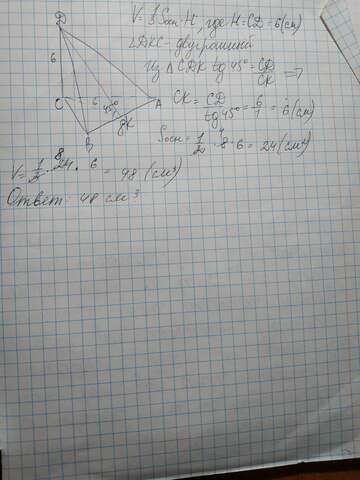 D
V = 1/3 Sосн·H, где H = CD = 6(см)
∠DKC - двугранный
6
Из △CDK tg 45° = CD/CK ⇒
C 6 45° A
CK = CD/tg 45° = 6/1 = 6(см)
8 K
B
Sосн = 1/2 · 8 · 6 = 24(см²)
V = 1/3 · 24 · 6 = 48 (см³)
Ответ: 48 см³